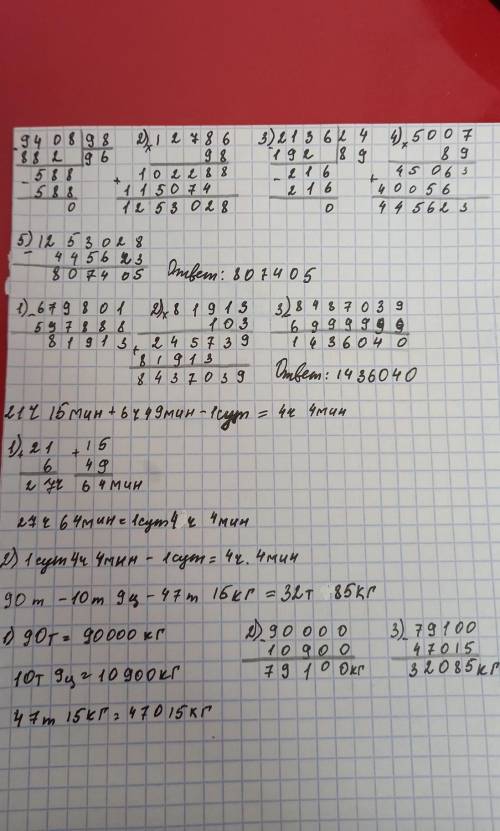 9408 98 2) 12786 3) 2136 24 4) 5007
882 96 × 98 - 192 89 × 89
- 588 102288 - 216 45063
- 588 + 115074 216 + 40056
0 1253028 0 445623
5) 1253028
- 445623
807405 Ответ: 807405
1) - 679801 2) × 81913 3) 8487039
597888 103 6999999
81913 + 245739 1436040
81913
8437039 Ответ: 1436040
21ч 15мин + 6ч 49мин - 1сут = 4ч 4мин
1) + 21 + 15
6 49
27ч 64мин
27ч 64мин = 1сут 4ч 4мин
2) 1сут 4ч 4мин - 1сут = 4ч. 4мин
90т - 10т 9ц - 47т 15кг = 32т 85кг
1) 90т = 90000кг 2) - 90000 3) - 79100
10900 47015
10т 9ц = 10900кг 79100кг 32085кг
47т 15кг = 47015кг